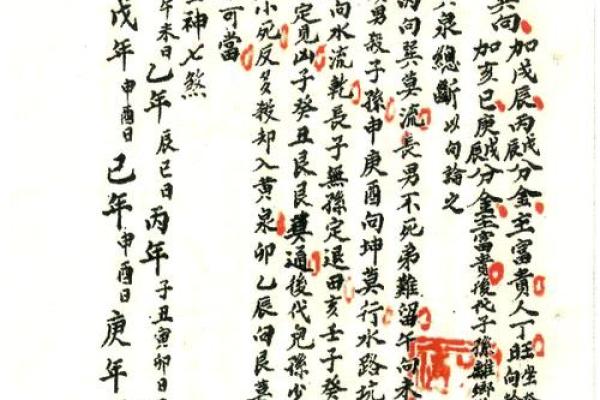 其向加戊辰丙戊辰分金主富貴人丁旺坐
加亥巳庚戊辰分金主富貴後代子孫離鄉
泉總斷以向論之
丙向巽莫流長男不死弟難留午向未
男殺子孫申庚酉向坤莫行水路坑
向水流乾長子無孫定退田亥壬子癸
定見凶子癸丑艮艮莫通後代兒孫少
小死反多殺却入黃泉卯乙辰向艮莫
可當
神七煞
午未日乙年辰巳日丙年子丑寅卯日
戊年申酉日己年申酉日庚年